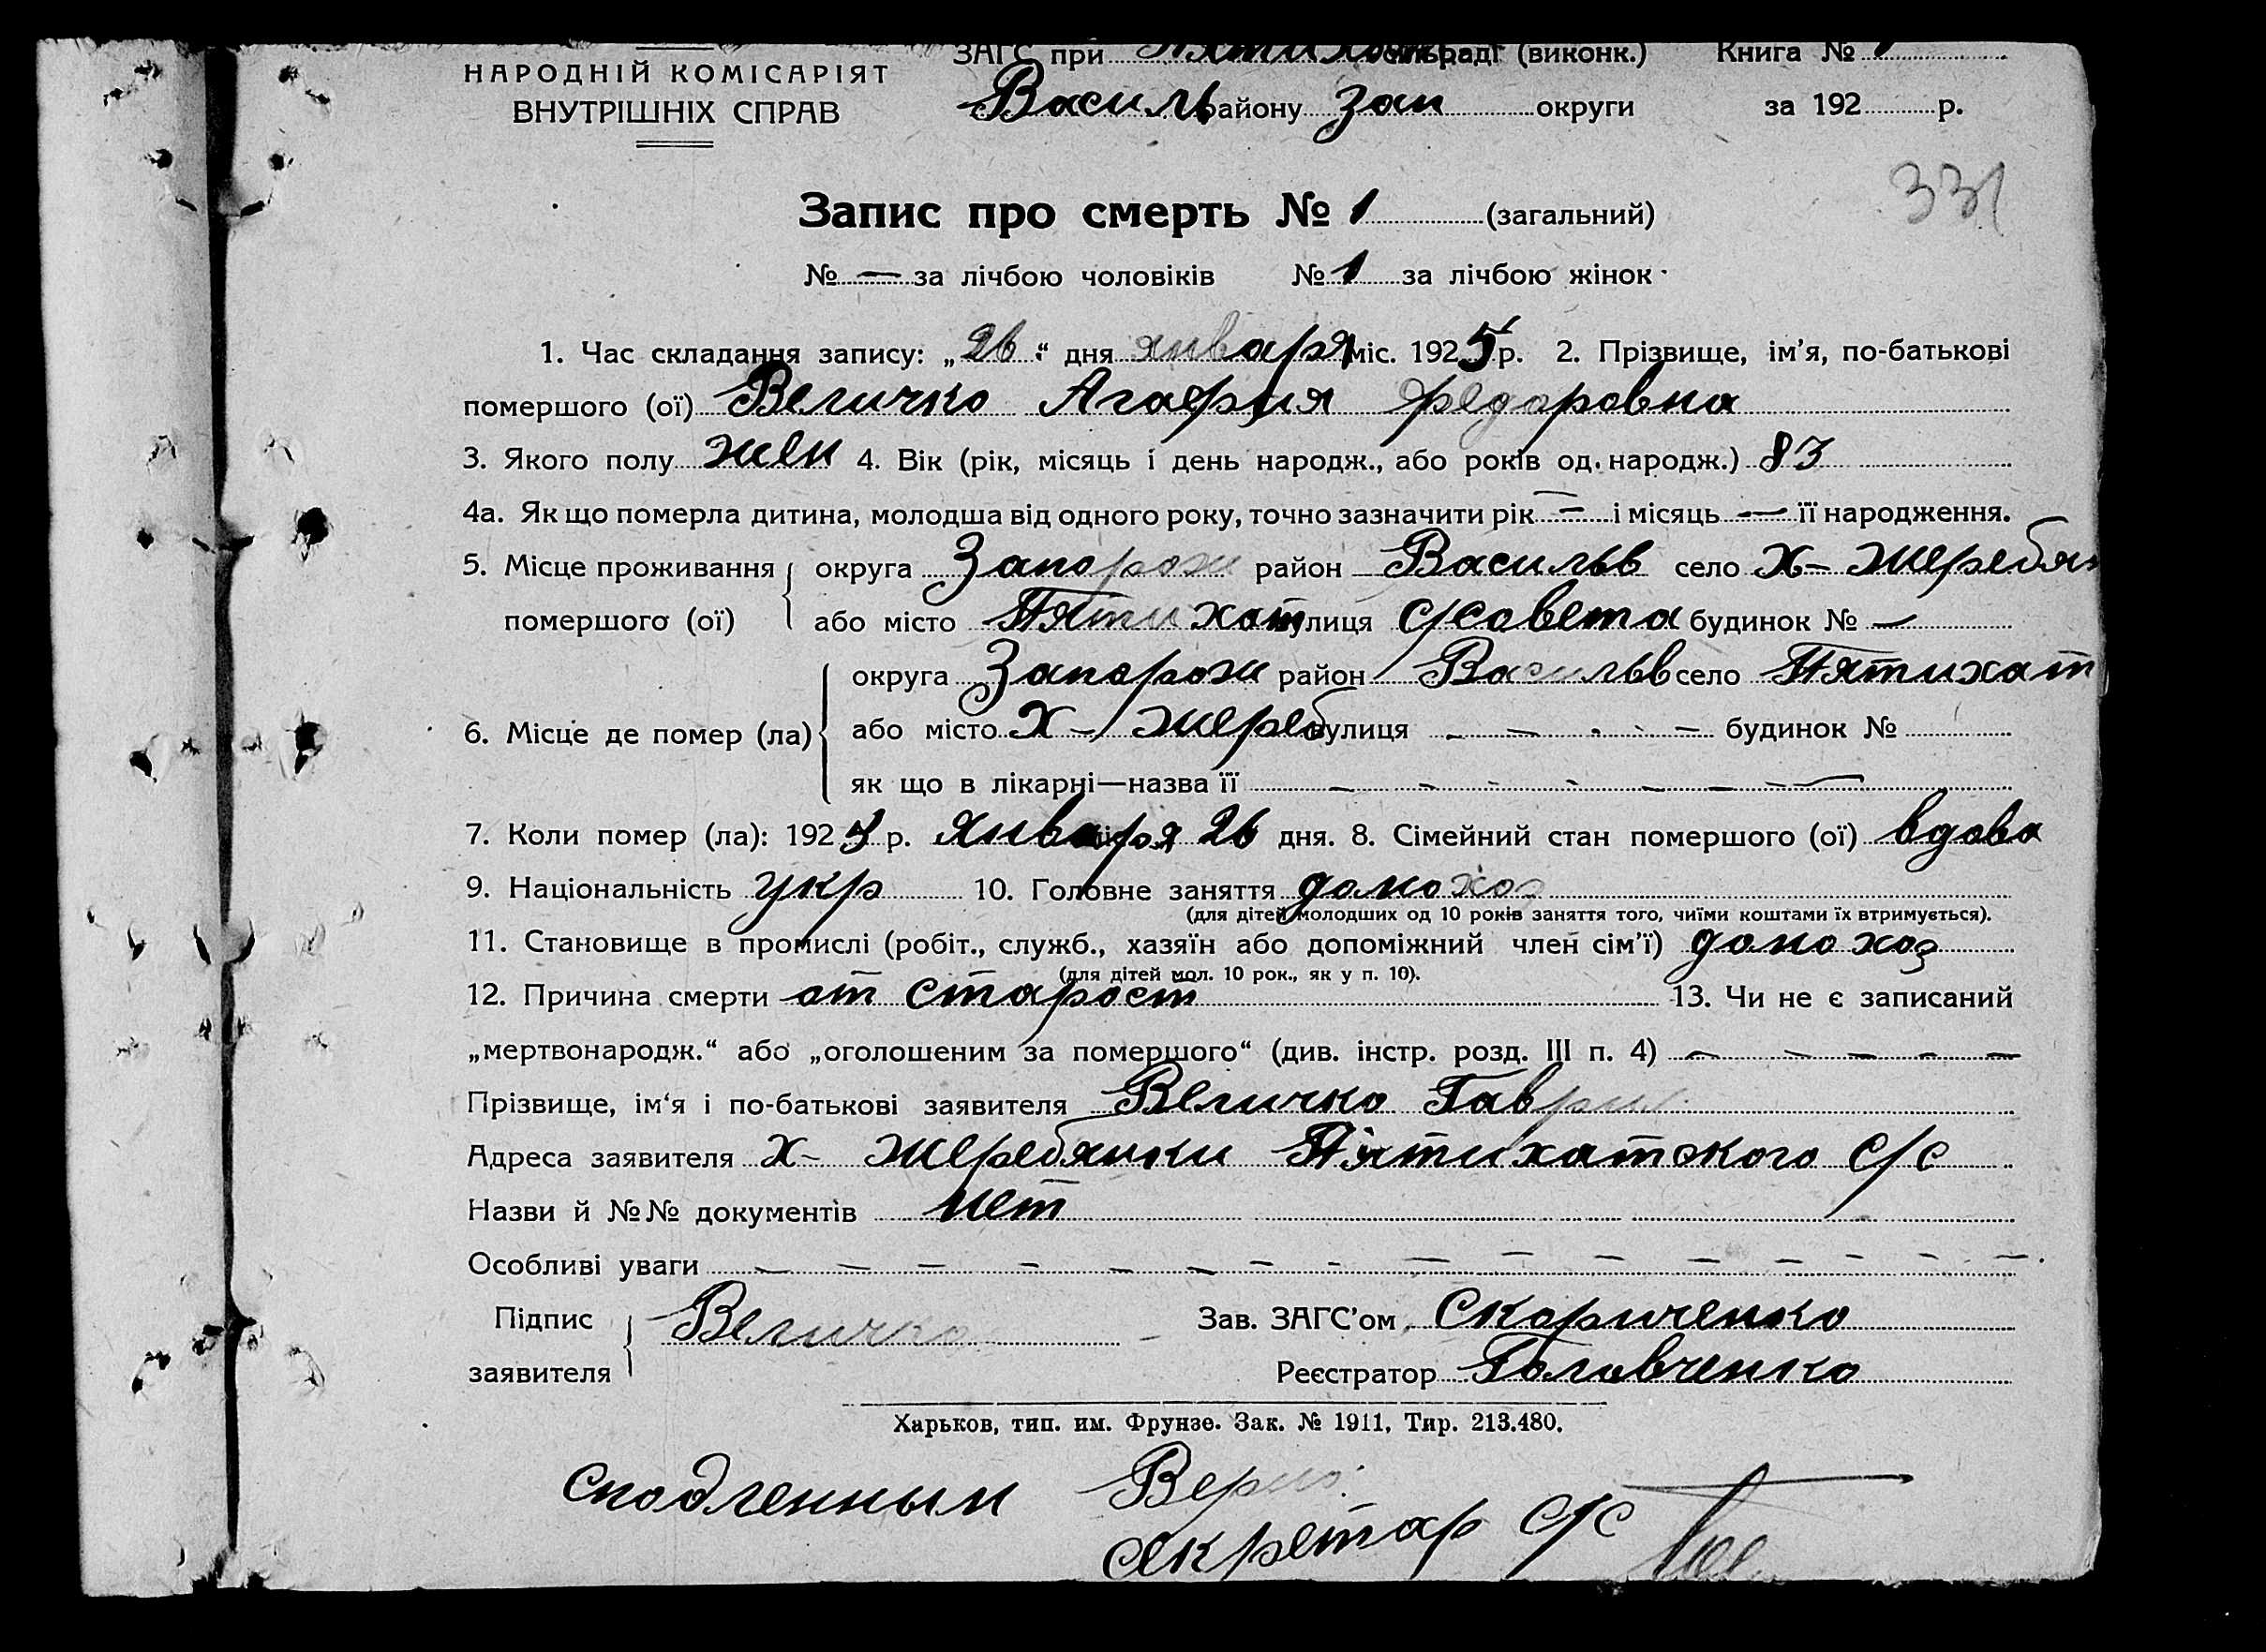 НАРОДНІЙ КОМІСАРІЯТ
ВНУТРІШНІХ СПРАВ
ЗАГС при Пятихат сільраді (виконк.) Книга № 1
Василь району Зап округи за 192 р.
331
Запис про смерть № 1 (загальний)
№ — за лічбою чоловіків № 1 за лічбою жінок
1. Час складання запису: „26“ дня января міс. 1925 р. 2. Прізвище, ім’я, по-батькові
помершого (ої) Величко Агафия Федоровна
3. Якого полу жен 4. Вік (рік, місяць і день народж., або років од. народж.) 83
4а. Як що померла дитина, молодша від одного року, точно зазначити рік — і місяць — її народження.
5. Місце проживання округа Запорож район Васильв село Х- Жеребян
помершого (ої) або місто Пятихат вулиця с/совета будинок № —
6. Місце де помер (ла) округа Запорож район Васильв село Пятихат
або місто Х - Жереб вулиця - — . - — будинок №
як що в лікарні—назва її — - - - — — —
7. Коли помер (ла): 192 р. января 26 дня. 8. Сімейний стан помершого (ої) вдова
9. Національність укр 10. Головне заняття домохоз
(для дітей молодших од 10 років заняття того, чиїми коштами їх втримується).
11. Становище в промислі (робіт., служб., хазяїн або допоміжний член сім’ї) домохоз
(для дітей мол. 10 рок., як у п. 10).
12. Причина смерти от старост 13. Чи не є записаний
„мертвонародж.“ або „оголошеним за помершого“ (див. інстр. розд. III п. 4) — — — — —
Прізвище, ім‘я і по-батькові заявителя Величко Гаврил
Адреса заявителя х- Жеребянки Пятихатского с/с
Назви й №№ документів нет
Особливі уваги — — — — — — — — — — — — — — —
Підпис заявителя Величко Зав. ЗАГС’ом Скориченко
Реєстратор Головченко
Харьков, тип. им. Фрунзе. Зак. № 1911, Тир. 213.480.
сподленным Верно:
секретар с/с